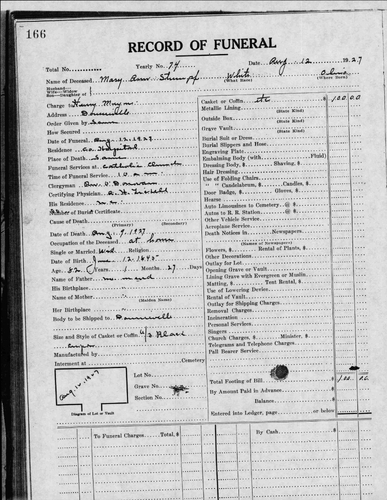 166
RECORD OF FUNERAL
Total No. Yearly No. 74 Date Aug. 12 1927
Name of Deceased Mary Ann Stumpf White Ohio
(What Race) (Where Born)
Husband—
Wife—Widow
Son—Daughter of
Charge to Harry
Address
Order Given by Same
How Secured
Date of Funeral Aug. 12. 1927
Residence Co. Hospital
Place of Death Same
Funeral Services at Catholic Church
Time of Funeral Service 10 a m
Clergyman Rev.
Certifying Physician
His Residence
No. of Burial Certificate
Cause of Death
(Primary) (Secondary)
Date of Death Aug. 9. 1927
Occupation of the Deceased at home
Single or Married Wid Religion
Date of Birth June 12. 1845
Age 82 Years 1 Months 27 Days
Name of Father
His Birthplace
Name of Mother
(Maiden Name)
Her Birthplace
Body to be Shipped to
Size and Style of Casket or Coffin 6/3 Black
Manufactured by
Interment at Cemetery
Lot No.
Grave No.
Section No.
Aug. 12. 1927
Diagram of Lot or Vault
Casket or Coffin etc 100 00
(State Kind)
Metallic Lining
(State Kind)
Outside Box
(State Kind)
Grave Vault
(State Kind)
Burial Suit or Dress
Burial Slippers and Hose
Engraving Plate
Embalming Body (with Fluid)
Dressing Body, $ Shaving, $
Hair Dressing
Use of Folding Chairs
" " Candelabrum, $ Candles, $
Door Badge, $ Gloves, $
Hearse
Auto Limousines to Cemetery @ $
Autos to R. R. Station @ $
Other Vehicle Service
Aeroplane Service
Death Notices in Newspapers
(Names of Newspapers)
Flowers, $ Rental of Plants, $
Other Decorations
Outlay for Lot
Opening Grave or Vault
Lining Grave with Evergreen or Muslin
Matting, $ Tent Rental, $
Use of Lowering Device
Rental of Vault
Outlay for Shipping Charges
Removal Charges
Incineration
Personal Services
Singers
Church Charges, $ Minister, $
Telegrams and Telephone Charges
Pall Bearer Service
Total Footing of Bill $ 100 00
By Amount Paid in Advance
Balance
Entered into Ledger, page or below
To Funeral Charges Total, $
By Cash